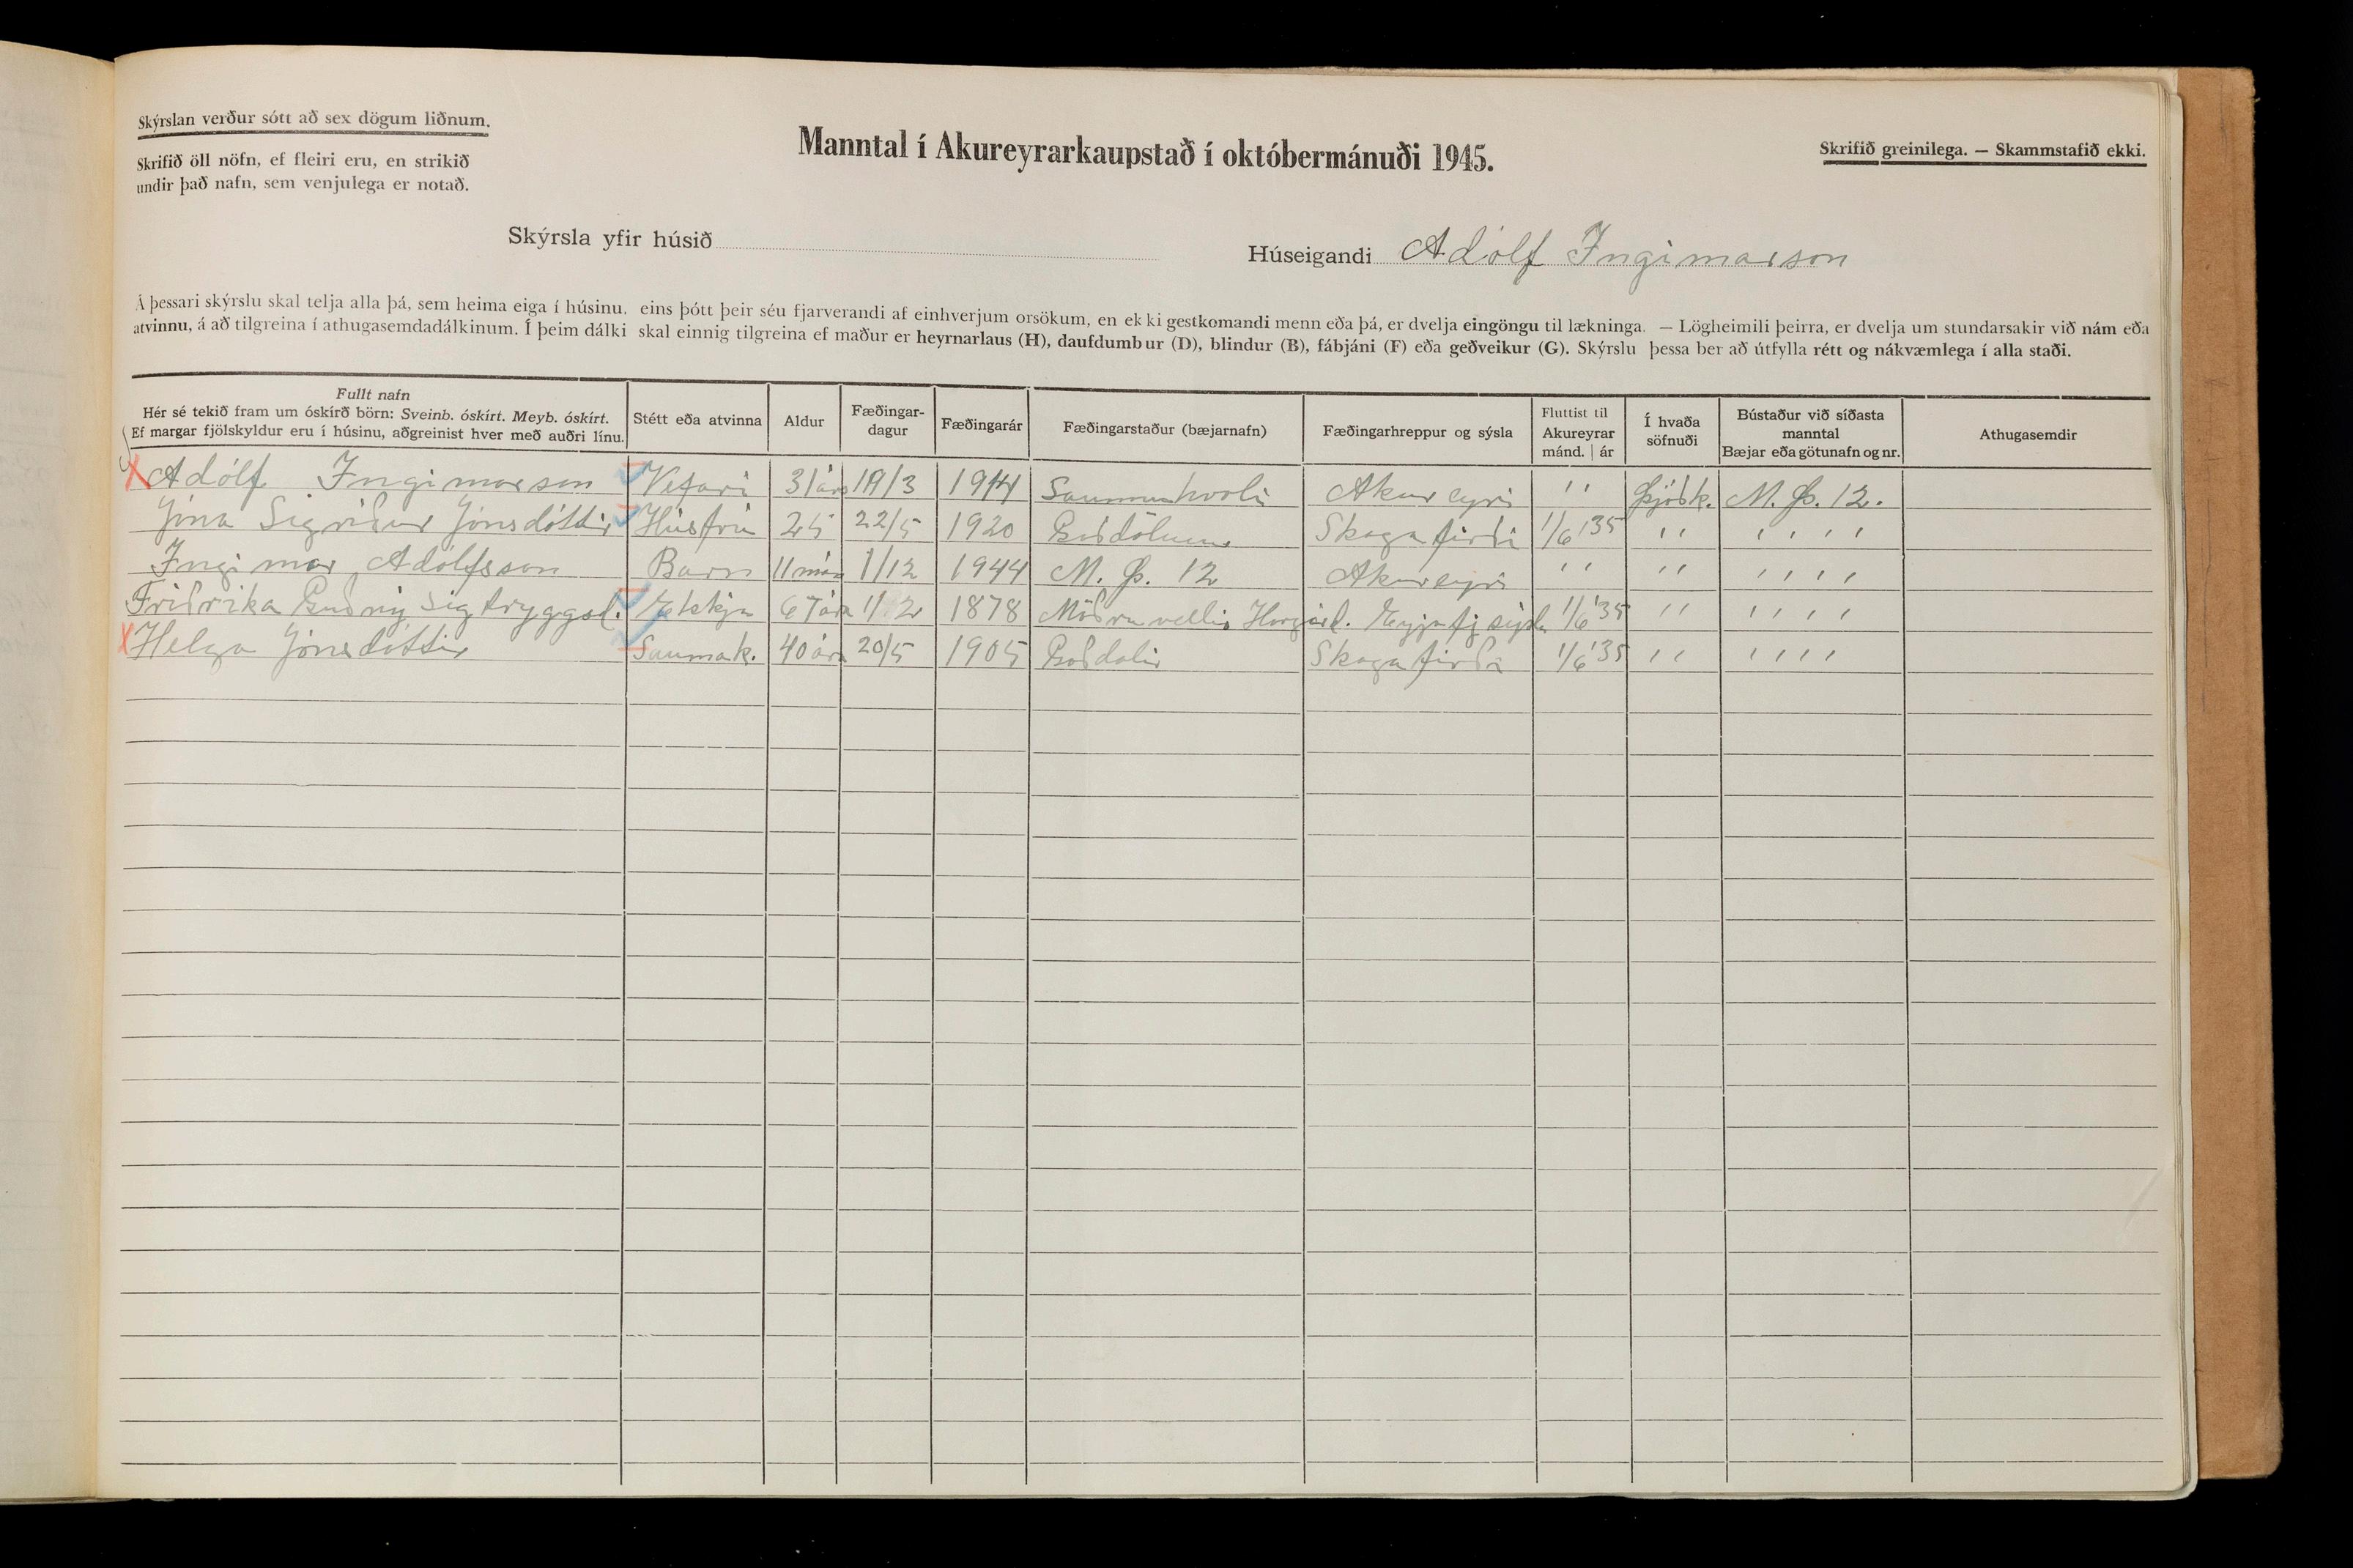 Skýrslan verður sótt að sex dögum liðnum.
Skrifið öll nöfn, ef fleiri eru, en strikið
undir það nafn, sem venjulega er notað.
Manntal í Akureyrarkaupstað í októbermánuði 1945.
Skrifið greinilega. — Skammstafið ekki.
Skýrsla yfir húsið
Húseigandi Adólf Ingimarson
Á þessari skýrslu skal telja alla þá, sem heima eiga í húsinu, eins þótt þeir séu fjarverandi af einhverjum orsökum, en ekki gestkomandi menn eða þá, er dvelja eingöngu til lækninga. — Lögheimili þeirra, er dvelja um stundarsakir við nám eða
atvinnu, á að tilgreina í athugasemdadálkinum. Í þeim dálki skal einnig tilgreina ef maður er heyrnarlaus (H), daufdumbur (D), blindur (B), fábjáni (F) eða geðveikur (G). Skýrslu þessa ber að útfylla rétt og nákvæmlega í alla staði.
Fullt nafn
Hér sé tekið fram um óskírð börn: Sveinb. óskírt. Meyb. óskírt.
Ef margar fjölskyldur eru í húsinu, aðgreinist hver með auðri línu.
Stétt eða atvinna
Aldur
Fæðingar-
dagur
Fæðingarár
Fæðingarstaður (bæjarnafn)
Fæðingarhreppur og sýsla
Fluttist til
Akureyrar
mánd. | ár
Í hvaða
söfnuði
Bústaður við síðasta
manntal
Bæjar eða götunafn og nr.
Athugasemdir
Adólf Ingimarson Vefari 31 árs 19/3 1914 Akureyri '' Þjóðk. M. Þ. 12.
Jóna Sigríður Jónsdóttir Húsfrú 25 22/5 1920 Goðdölum Skagafirði 1/6 '35 '' ' ' ' '
Ingimar Adólfsson Barn 11 mán 1/12 1944 M. Þ. 12 Akureyri '' '' ' ' ' '
Friðrika Guðný Sigtryggsd. Ekkja 67 ára 1/2 1878 Möðruvellir Hörgárd. Eyjafj sýsla 1/6 '35 '' ' ' ' '
Helga Jónsdóttir Saumak. 40 ára 20/5 1905 Goðdalir Skagafirði 1/6 '35 '' ' ' ' '